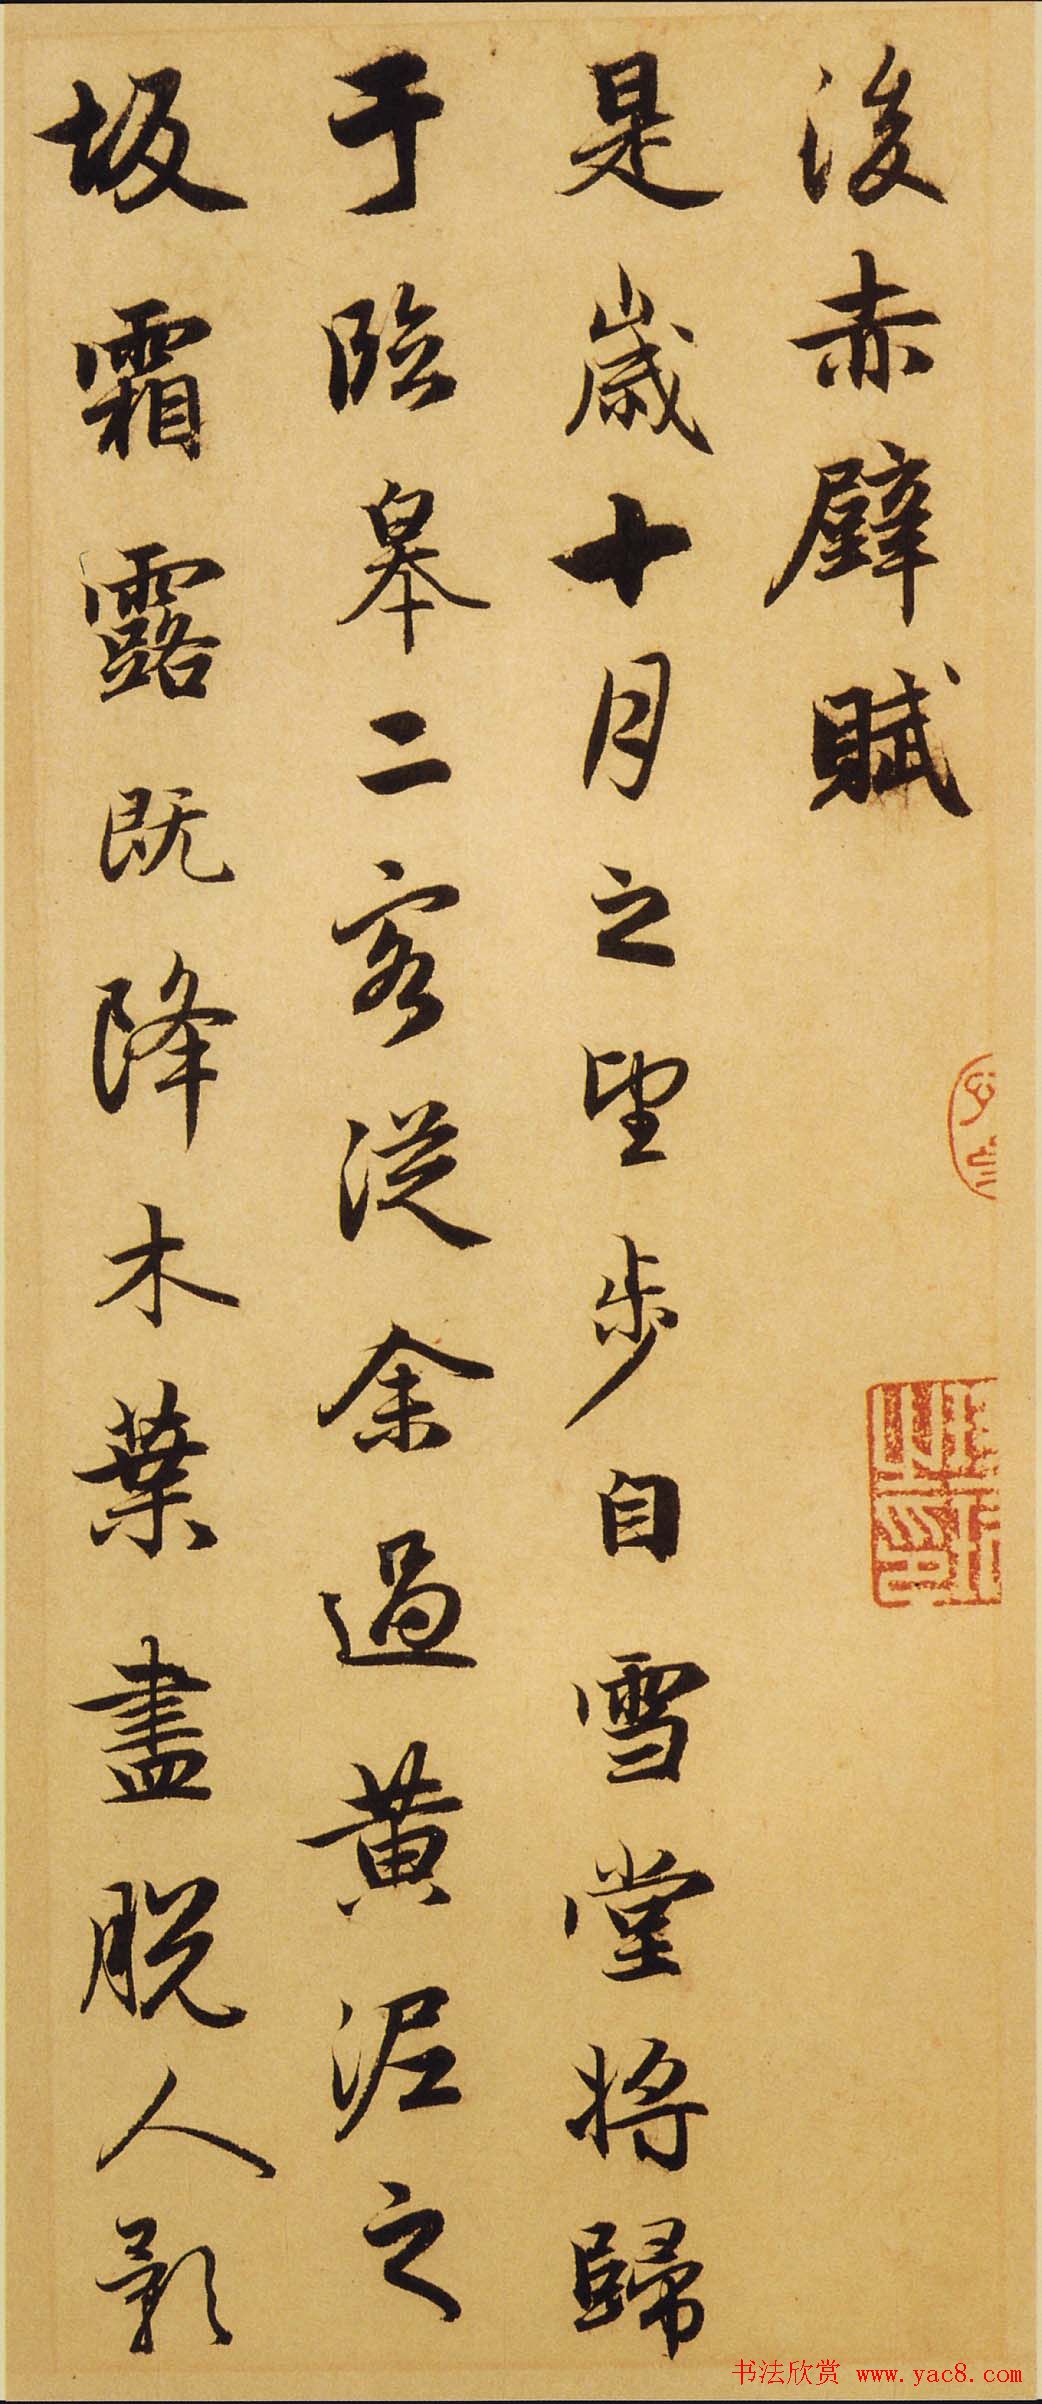 後赤壁賦
是歲十月之望步自雪堂將歸
于臨皋二客從余過黃泥之
坂霜露既降木葉盡脫人影
书法欣赏 www.yac8.com